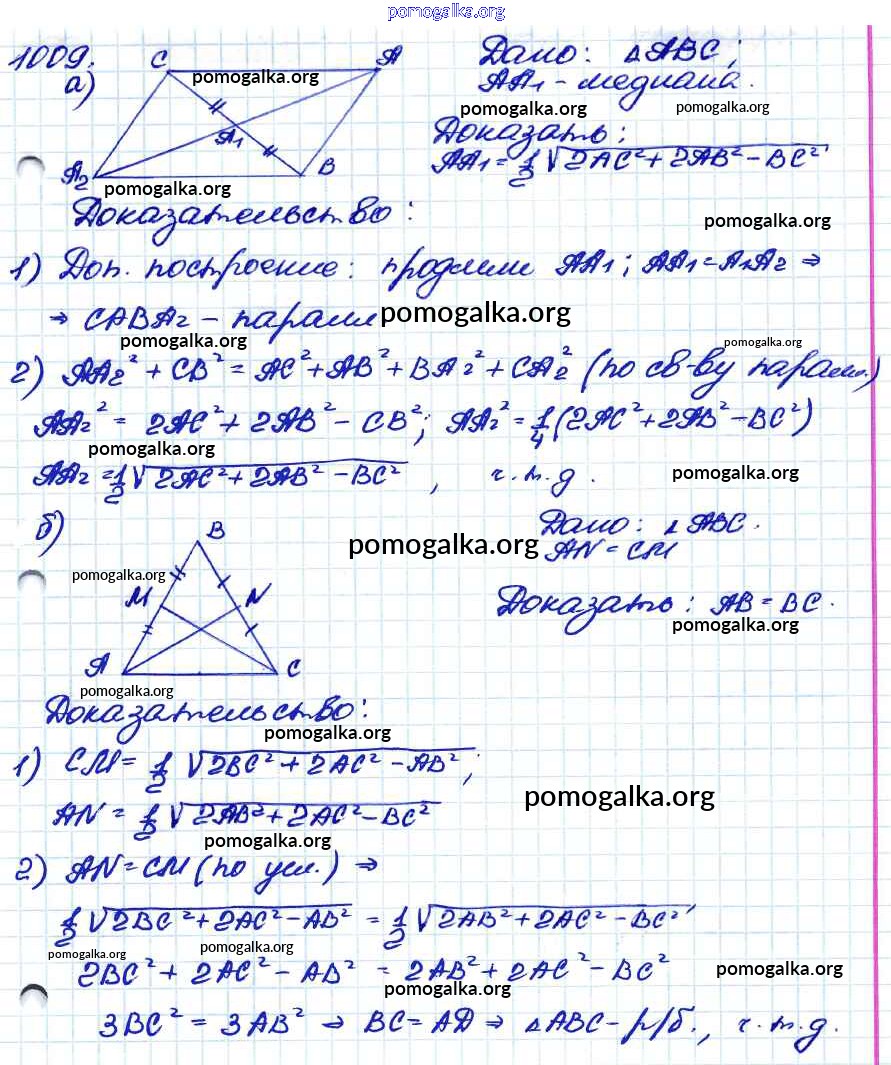 pomogalka.org
1009.
а)
C
A
A1
A2
B
pomogalka.org
pomogalka.org
Дано: △ABC;
AA1 - медиана.
pomogalka.org pomogalka.org
Доказать:
AA1 = 1/2 √2AC² + 2AB² - BC²
Доказательство:
pomogalka.org
1) Доп. построение: продлим AA1; AA1 = A1A2 ⇒
⇒ CABA2 - парал pomogalka.org
pomogalka.org pomogalka.org
2) AA2² + CB² = AC² + AB² + BA2² + CA2² (по св-ву парал.)
AA2² = 2AC² + 2AB² - CB²; AA2² = 1/4 (2AC² + 2AB² - BC²)
pomogalka.org
AA2 = 1/2 √2AC² + 2AB² - BC², ч.т.д.
pomogalka.org
б)
B
M
N
A
C
pomogalka.org
pomogalka.org
pomogalka.org
Дано: △ABC.
AN = CM
Доказать: AB = BC.
pomogalka.org
Доказательство:
pomogalka.org
1) CM = 1/2 √2BC² + 2AC² - AB²;
AN = 1/2 √2AB² + 2AC² - BC²
pomogalka.org
pomogalka.org
2) AN = CM (по усл.) ⇒
1/2 √2BC² + 2AC² - AB² = 1/2 √2AB² + 2AC² - BC²
pomogalka.org pomogalka.org
2BC² + 2AC² - AB² = 2AB² + 2AC² - BC²
pomogalka.org
pomogalka.org
3BC² = 3AB² ⇒ BC = AD ⇒ △ABC - р/б., ч.т.д.